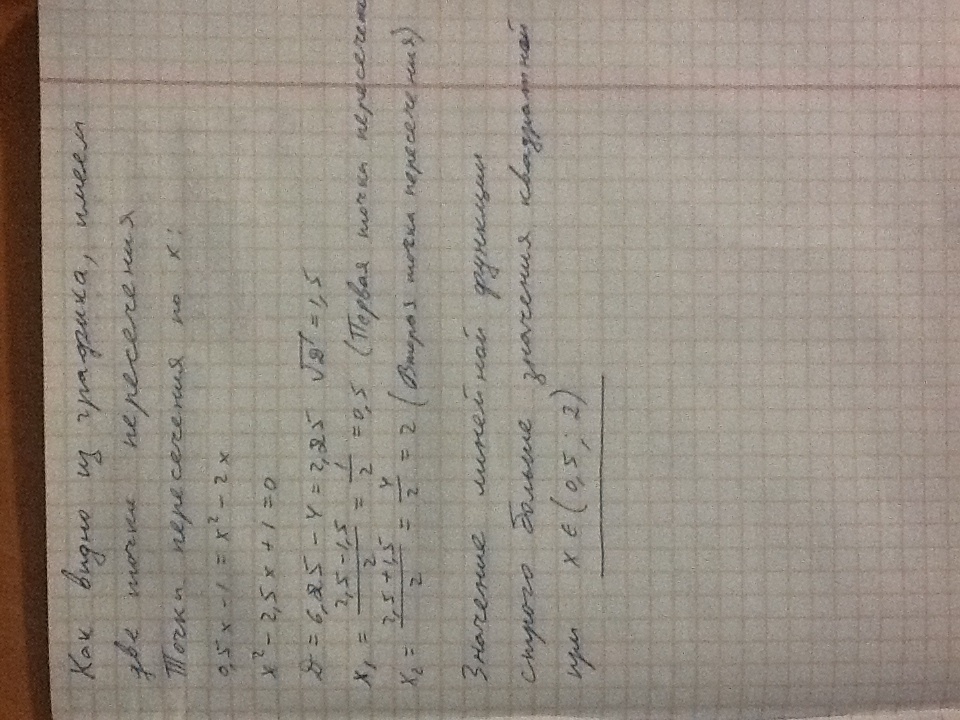 Как видно из графика, имеем
две точки пересечения
Точки пересечения по x:
0,5x - 1 = x² - 2x
x² - 2,5x + 1 = 0
D = 6,25 - 4 = 2,25 √D = 1,5
x₁ = (2,5 - 1,5)/2 = 1/2 = 0,5 (Первая точка
x₂ = (2,5 + 1,5)/2 = 4/2 = 2 (Вторая точка пересечения)
Значение линейной функции
строго больше значения квадратной
при x ∈ (0,5; 2)